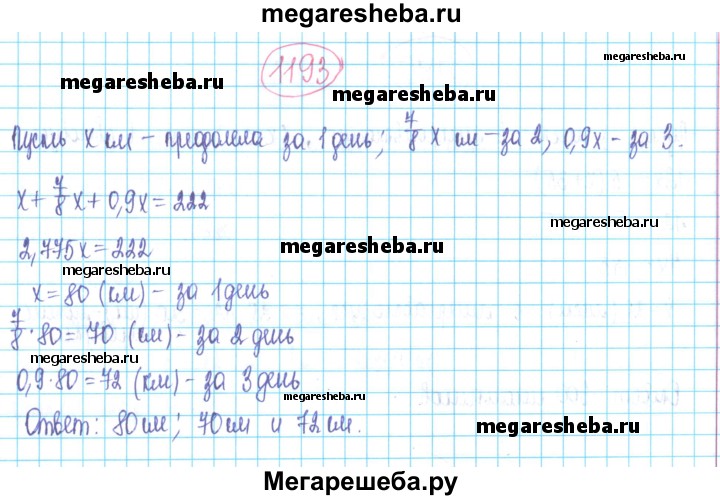 megaresheba.ru
1193
megaresheba.ru
megaresheba.ru
megaresheba.ru
Пусть x км – преодолела за 1 день; 7/8 x км – за 2, 0,9x – за 3.
x + 7/8 x + 0,9x = 222
2,775x = 222
megaresheba.ru
megaresheba.ru
x = 80 (км) – за 1 день
7/8 · 80 = 70 (км) – за 2 день
megaresheba.ru
0,9 · 80 = 72 (км) – за 3 день
megaresheba.ru
Ответ: 80 км; 70 км и 72 км.
megaresheba.ru
Мегарешеба.ру